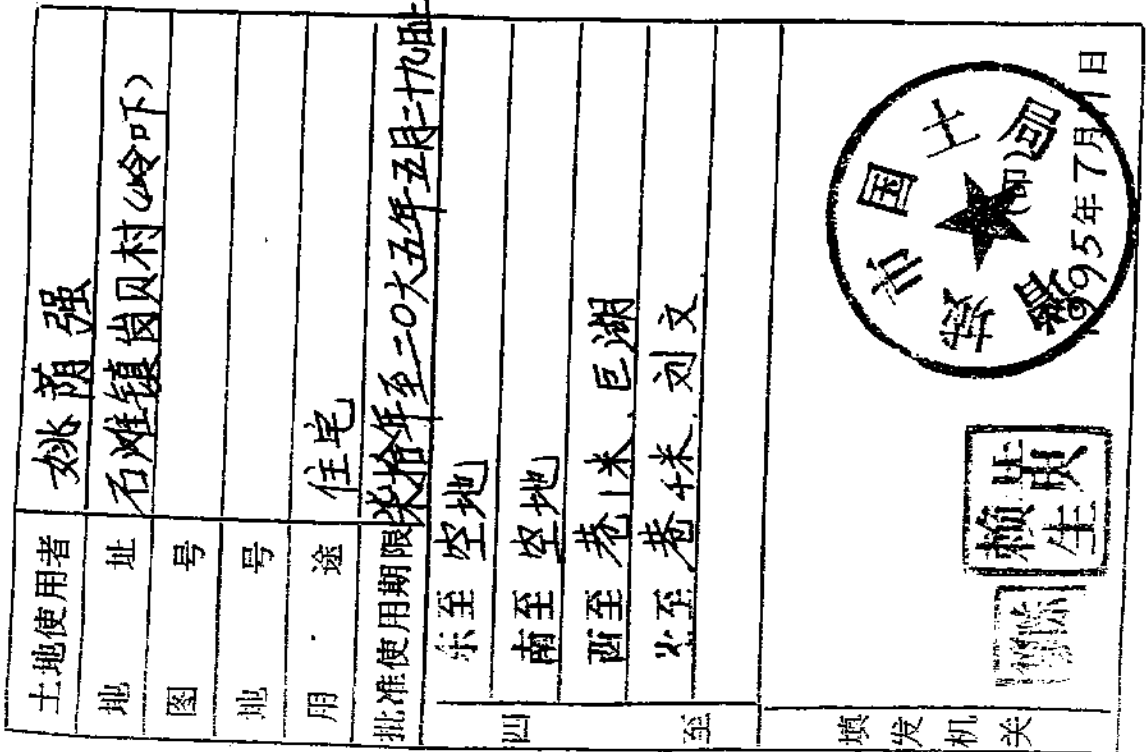 土地使用者 姚荫强
地址 石滩镇岗贝村(岭吓)
图号
地号
用途 住宅
批准使用期限 柒拾年至二0六五年五月二十九日止
四至
东至 空地
南至 空地
西至 巷1米、巨湖
北至 巷4米、刘文
填发机关
赖生
增城市国土局
(印)
1995年7月 日